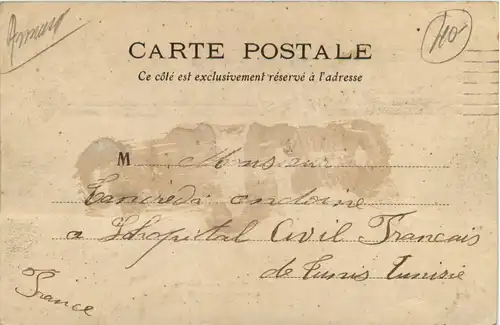 40
CARTE POSTALE
Ce côté est exclusivement réservé à l'adresse
M Monsieur
Tancredi Antoine
a Lhopital Civil Francais
de Tunis Tunisie
France